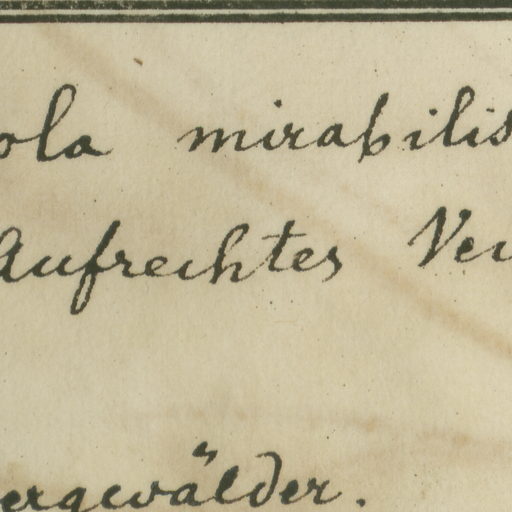 ola mirabilis
Aufrechtes Vei
ergwälder.